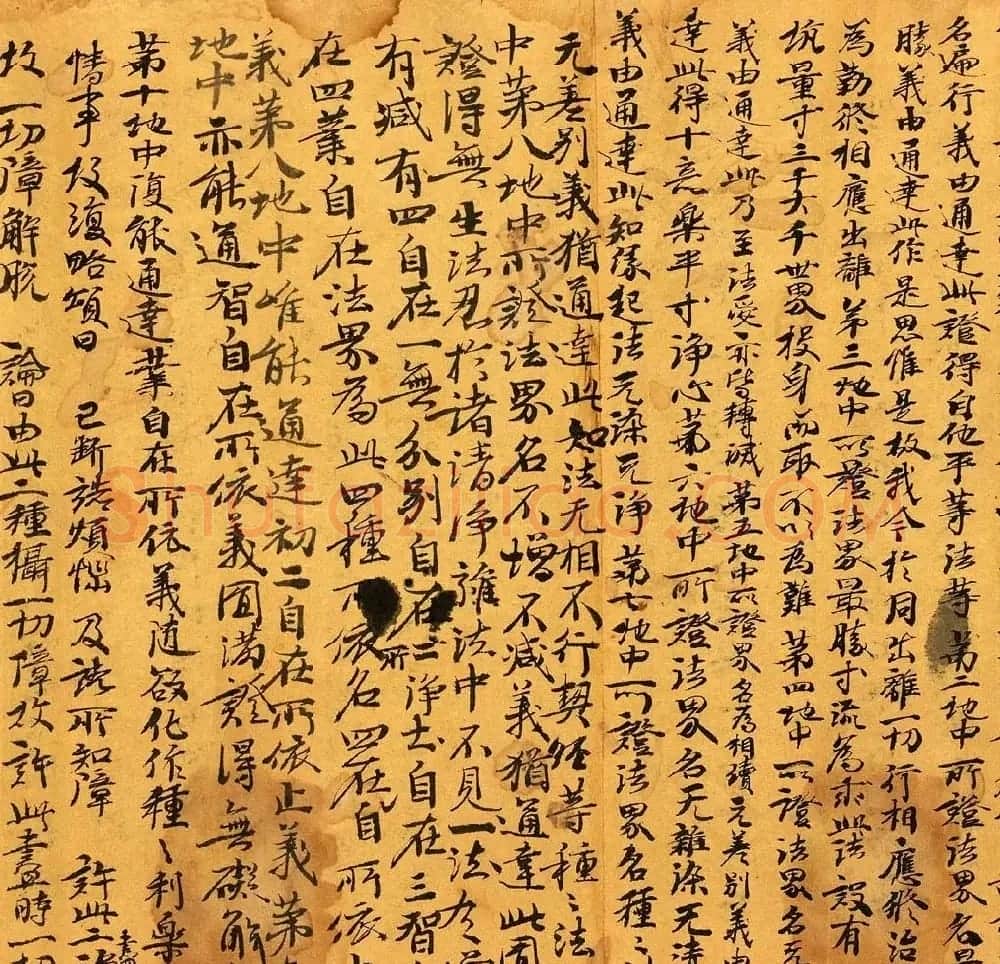 名遍行義由通達此證得自他平等法等第二地中所證法界名最
勝義由通達此作是思惟是故我今於同出離一切行相應修治
為勤修相應出離第三地中所證法界最勝等流為求此法設有
坑量等三千大千世界投身而取不以為難第四地中所證法界名无
義由通達此乃至法愛亦皆轉滅第五地中所證界名為相續无差別義由
達此得十意樂平等淨心第六地中所證法界名无雜染无清
義由通達此知緣起法无染无淨第七地中所證法界名種〻
无差別義猶通達此知法无相不行契經等種〻法
中第八地中所證法界名不增不減義猶通達此圓
證得無生法忍於諸清淨雜法中不見一法有
有減有四自在一無分別自在二淨土自在三智
在四業自在法界為此四種所依名四在自所依
義第八地中唯能通達初二自在所依止義第
地中亦能通智自在所依義圓滿證得無礙解
第十地中復能通達業自在所依義隨欲化作種〻利樂
情事故復略頌曰 已斷諸煩惱 及諸所知障 許此二
故一切障解脫 論曰由此二種攝一切障故許此盡時一切
Shufazidao.com